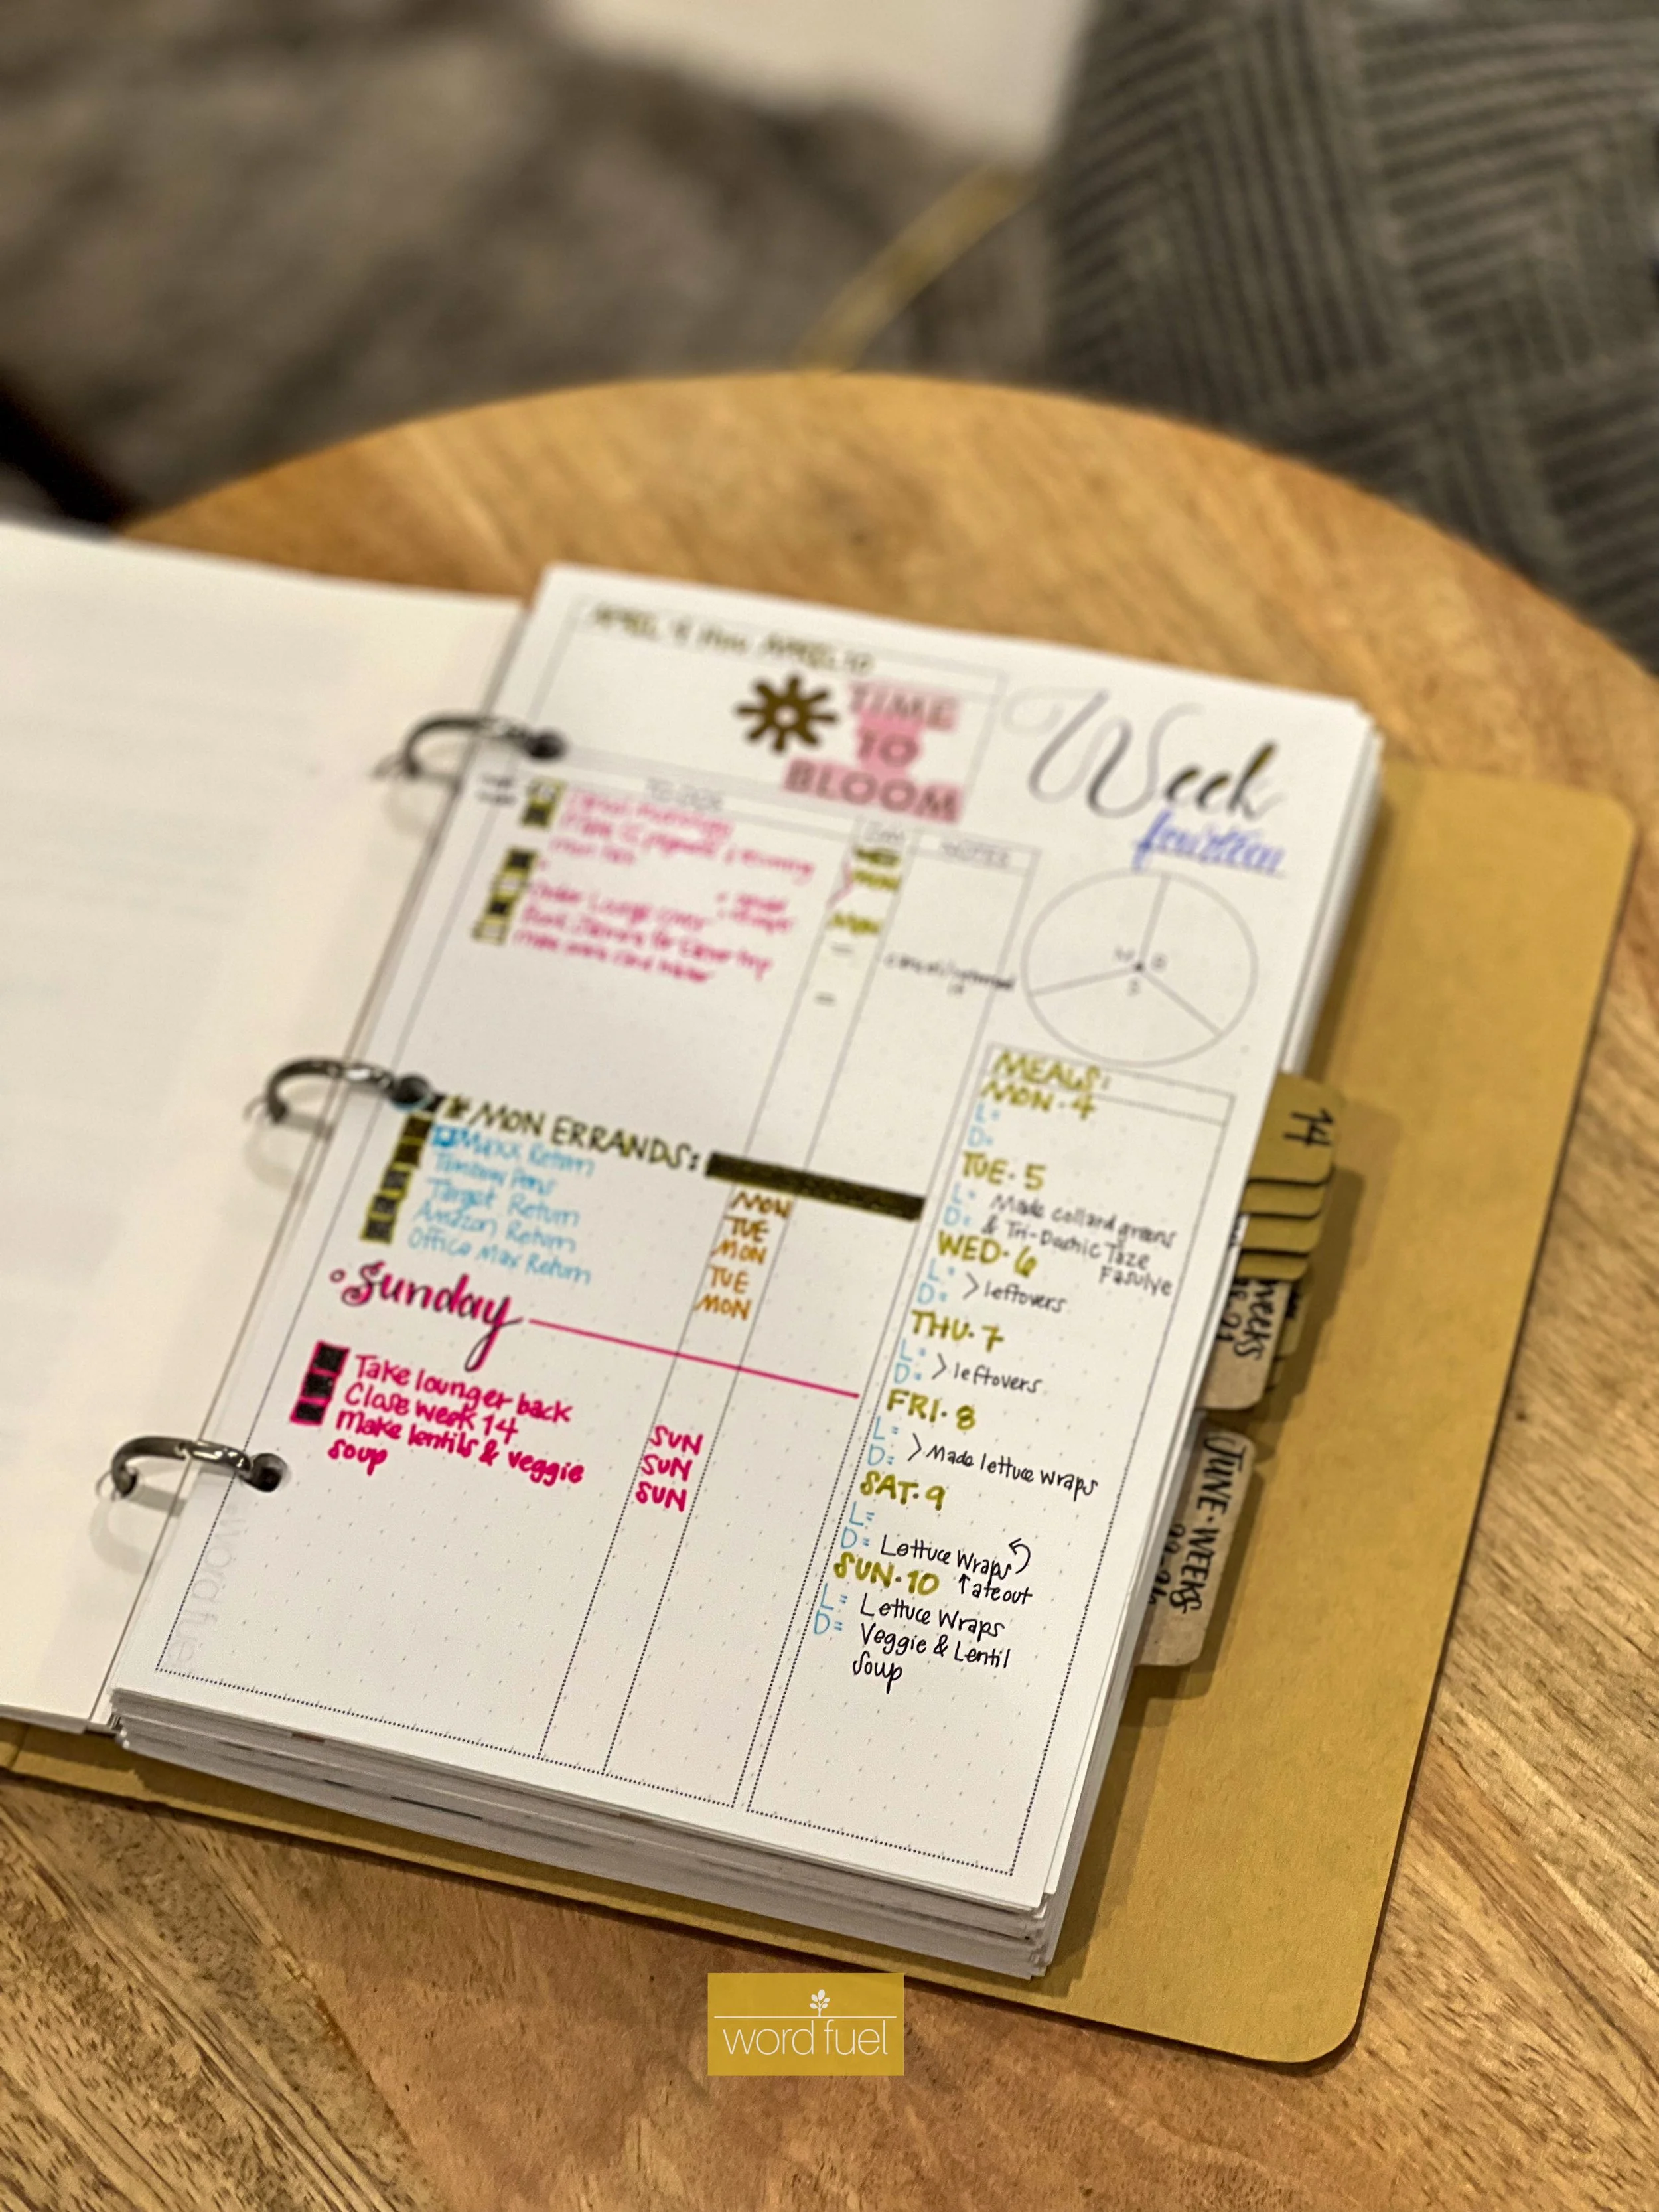 APRIL 4 thru APRIL 10
TIME
TO
BLOOM
Week
fourteen
TO DOS
DAY
NOTES
WED
MON
MON
Order Lounge
Book for Easter trip
MON ERRANDS:
TJ Maxx Return
Tombow Pens
Target Return
Amazon Return
Office Max Return
MON
TUE
MON
TUE
MON
Sunday
Take lounger back
Close week 14
Make lentils & veggie
soup
SUN
SUN
SUN
MEALS:
MON. 4
L:
D:
TUE. 5
L: Made collard greens
D: & Tri-Dashic Taze
Fasulye
WED. 6
L:
D: > leftovers
THU. 7
L:
D: > leftovers
FRI. 8
L:
D: > Made lettuce wraps
SAT. 9
L:
D: Lettuce Wraps
SUN. 10 ↑ ate out
L: Lettuce Wraps
D: Veggie & Lentil
Soup
14
weeks
JUNE. WEEKS
word fuel
word fuel